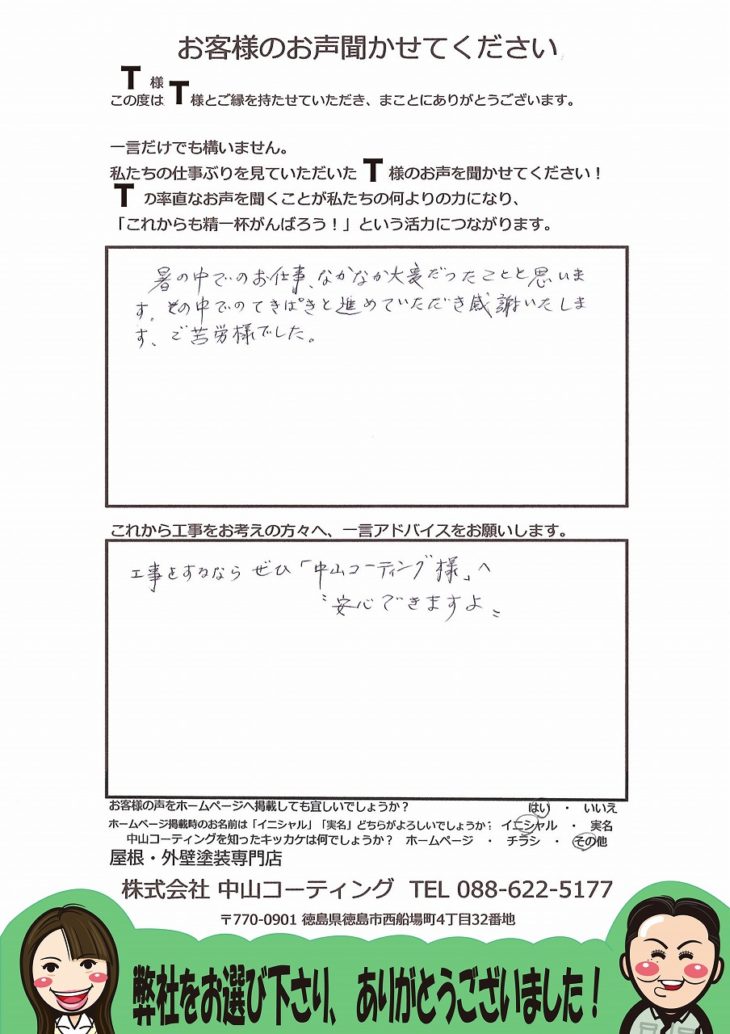 お客様のお声聞かせてください
T 様
この度は T 様とご縁を持たせていただき、まことにありがとうございます。
一言だけでも構いません。
私たちの仕事ぶりを見ていただいた T 様のお声を聞かせてください！
T の率直なお声を聞くことが私たちの何よりの力になり、
「これからも精一杯がんばろう！」という活力につながります。
暑の中でのお仕事、なかなか大変だったことと思いま
す。その中でのてきぱきと進めていただき感謝いたしま
す、ご苦労様でした。
これから工事をお考えの方々へ、一言アドバイスをお願いします。
工事をするなら ぜひ「中山コーティング様」へ
〝安心できますよ〟
お客様の声をホームページへ掲載しても宜しいでしょうか？ はい ・ いいえ
ホームページ掲載時のお名前は「イニシャル」「実名」どちらがよろしいでしょうか； イニシャル ・ 実名
中山コーティングを知ったキッカケは何でしょうか？ ホームページ ・ チラシ ・ その他
屋根・外壁塗装専門店
株式会社 中山コーティング TEL 088-622-5177
〒770-0901 徳島県徳島市西船場町4丁目32番地
弊社をお選び下さり、ありがとうございました！